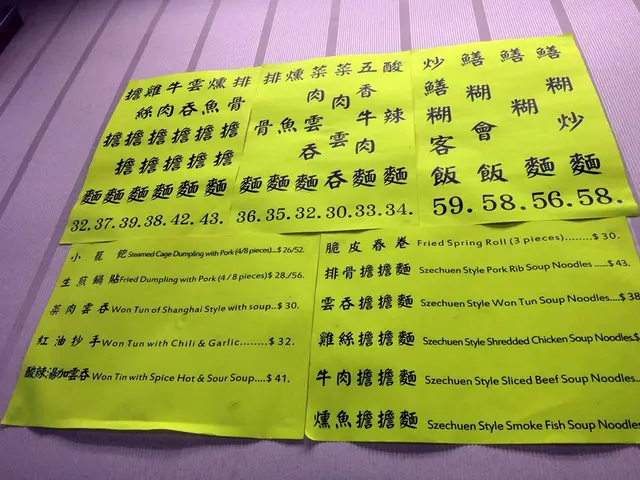 擔擔麵 32.
雞絲擔擔麵 37.
牛肉擔擔麵 39.
雲吞擔擔麵 38.
燻魚擔擔麵 42.
排骨擔擔麵 43.
排骨麵 36.
燻魚麵 35.
菜肉雲吞麵 32.
菜肉雲吞 30.
五香牛肉麵 33.
酸辣麵 34.
炒鱔糊客飯 59.
鱔糊會飯 58.
鱔糊麵 56.
鱔糊炒麵 58.
小籠飽 Steamed Cage Dumpling with Pork (4/8 pieces)..$ 26/52.
生煎鍋貼 Fried Dumpling with Pork (4 / 8 pieces)$ 28./56.
菜肉雲吞 Won Tun of Shanghai Style with soup..$ 30.
紅油抄手 Won Tun with Chili & Garlic........$ 32.
酸辣湯加雲吞 Won Tin with Spice Hot & Sour Soup....$ 41.
脆皮春卷 Fried Spring Roll (3 pieces)........$ 30.
排骨擔擔麵 Szechuen Style Pork Rib Soup Noodles .....$ 43.
雲吞擔擔麵 Szechuen Style Won Tun Soup Noodles....$ 38
雞絲擔擔麵 Szechuen Style Shredded Chicken Soup Noodles.$
牛肉擔擔麵 Szechuen Style Sliced Beef Soup Noodles..
燻魚擔擔麵 Szechuen Style Smoke Fish Soup Noodles